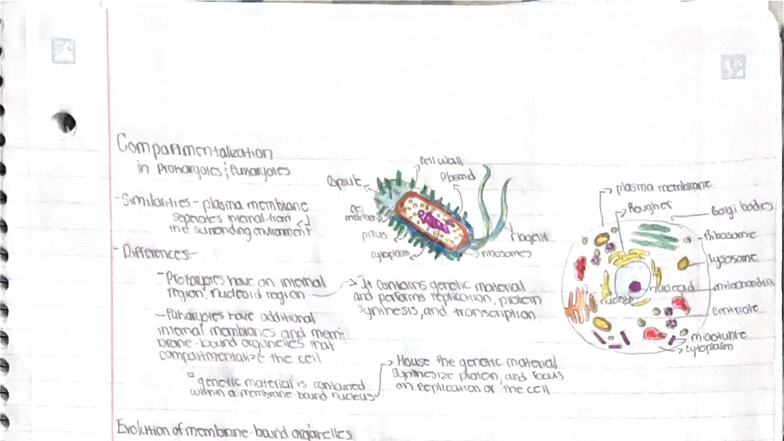 Compartmentalization
in Prokaryotes & Eukaryotes
-Similarities- plasma membrane
separates internal from
the surrounding environment
-Differences-
-Prokaryotes have an internal
region, nucleoid region
It contains genetic material
and performs replication, protein
synthesis, and transcription
-Eukaryotes have additional
internal membranes and mem
brane-bound organelles that
compartmentalize the cell
genetic material is contained
within a membrane bound nucleus
House the genetic material
synthesize protein, and focus
on replication of the cell
Evolution of membrane-bound organelles
Capsule
cell wall
Plasmid
cell
membrane
pillus
cytoplasm
ribosomes
plasma membrane
Rough er
Golgi bodies
Ribosome
lysosome
mitochondria
centriole
cytoplasm